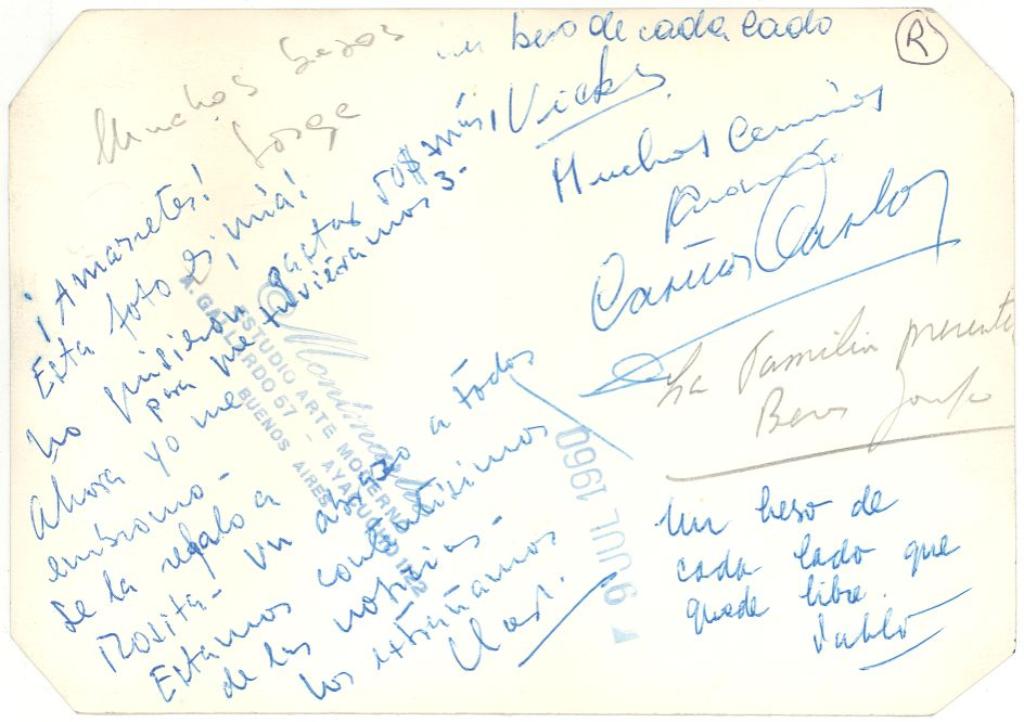 Muchos besos
Jorge
un beso de cada lado
Vicky
R
¡Amarretes!
Esta foto es ¡mía!
No pudieron gastar 50$ más,
para que tuviéramos 3-
Ahora yo me
embromo-
Se la regalo a
Rosita-
Un abrazo a todos
Estamos contentísimos
de las noticias-
Los extrañamos
Muchos
Cariños Carlos
La Familia presente
Jorge
Un beso de
cada lado que
quede libre.
Pablo
ESTUDIO ARTE MODERNO
A. GALLARDO 57 - AYACUCHO
BUENOS AIRES
9 JUL 1960